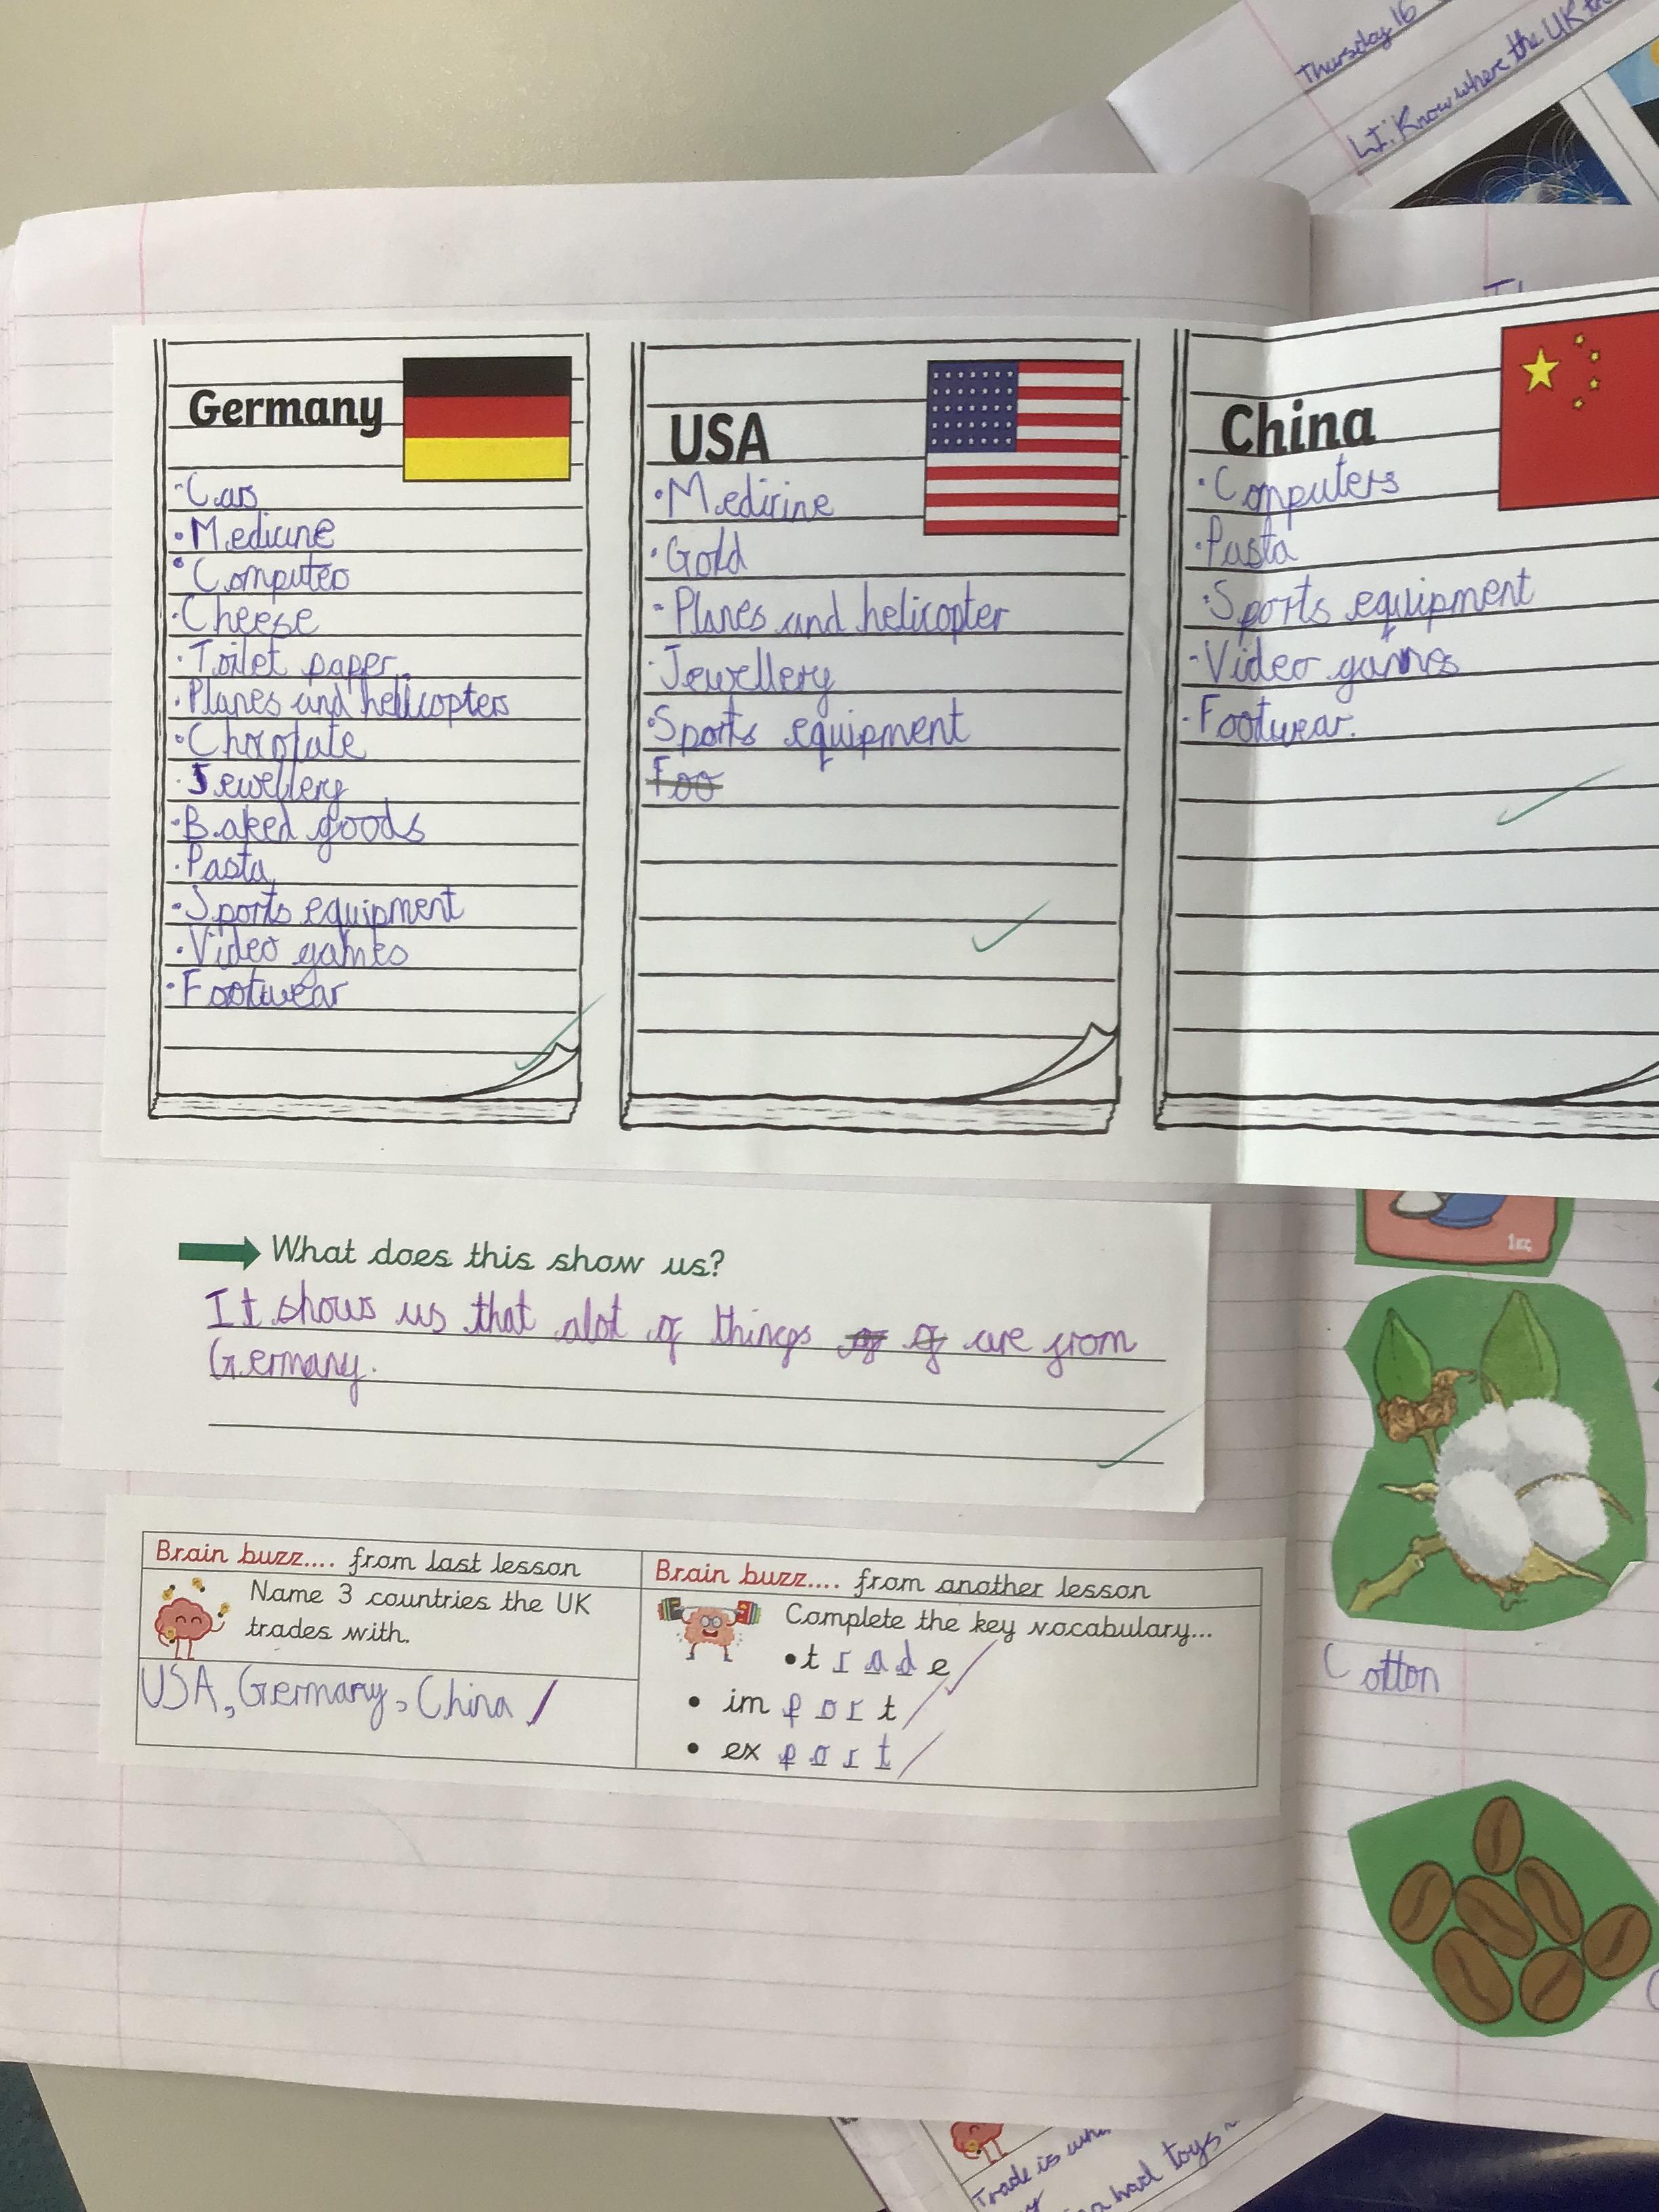 Thursday 16
L.I. Know where the UK
Germany
Cars
Medicine
Computer
Cheese
Toilet paper.
Planes and hellicopters
Chocolate
Jewellery
Baked goods
Pasta
Sports equipment
Video games
Footwear
USA
Medicine
Gold
Planes and helicopter
Jewellery
Sports equipment
Foo
China
Computers
Pasta
Sports equipment
Video games
Footwear.
What does this show us?
It shows us that alot of things of of are from
Germany.
Brain buzz.... from last lesson
Name 3 countries the UK
trades with.
USA, Germany, China
Brain buzz.... from another lesson
Complete the key vocabulary...
•trade
• import
• export
1KG
Cotton
Trade is
had toys